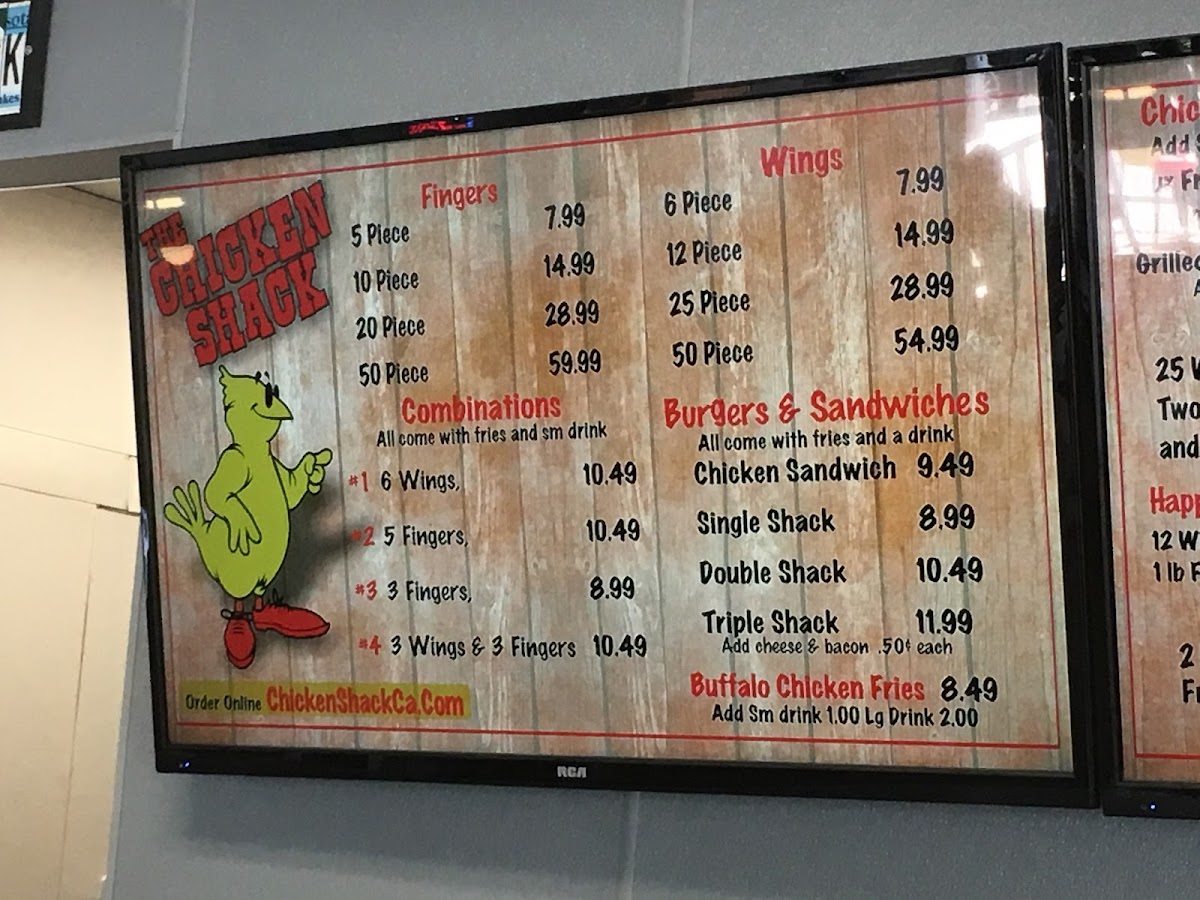 K
THE
CHICKEN
SHACK
Fingers
5 Piece 7.99
10 Piece 14.99
20 Piece 28.99
50 Piece 59.99
Wings
6 Piece 7.99
12 Piece 14.99
25 Piece 28.99
50 Piece 54.99
Combinations
All come with fries and sm drink
#1 6 Wings, 10.49
#2 5 Fingers, 10.49
#3 3 Fingers, 8.99
#4 3 Wings & 3 Fingers 10.49
Burgers & Sandwiches
All come with fries and a drink
Chicken Sandwich 9.49
Single Shack 8.99
Double Shack 10.49
Triple Shack 11.99
Add cheese & bacon .50¢ each
Buffalo Chicken Fries 8.49
Add Sm drink 1.00 Lg Drink 2.00
Order Online ChickenShackCa.Com
RCA
Add
25
Two
and
12 W
1 lb F
2